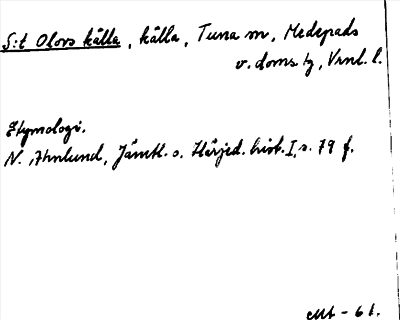 S:t Olovs källa, källa, Tuna sn, Medelpads
v. doms. tg, Vrnl. l.
Etymologi.
N. Ahnlund, Jämtl. o. Härjed. hist. I, s. 79 f.
- 61.